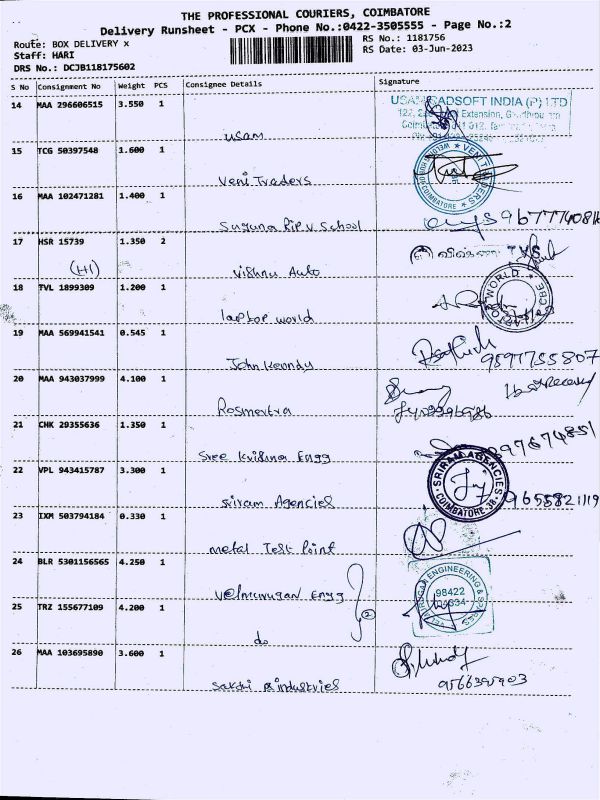 THE PROFESSIONAL COURIERS, COIMBATORE
Delivery Runsheet - PCX - Phone No.:0422-3505555 - Page No.:2
Route: BOX DELIVERY x
RS No.: 1181756
Staff: HARI
RS Date: 03-Jun-2023
DRS No.: DCJB118175602
S No Consignment No Weight PCS Consignee Details Signature
14 MAA 296606515 3.550 1
usam
USAM CADSOFT INDIA (P) LTD
Extension,
15 TCG 50397548 1.600 1
Veni Traders
VENI TRADERS COIMBATORE
16 MAA 102471281 1.400 1
Suguna RIP V School
9677740816
17 HSR 15739 1.350 2
(H1)
Vishnu Auto
TVS
18 TVL 1899309 1.200 1
laptop world
LAPTOP WORLD CBE
19 MAA 569941541 0.545 1
John Kenndy
9597755807
20 MAA 943037999 4.100 1
Rosmertra
1 box Received
21 CHK 29355636 1.350 1
Sree Krishna Engg
22 VPL 943415787 3.300 1
Sriram Agencies
SRIRAM AGENCIES COIMBATORE
9655821119
23 IXM 503794184 0.330 1
metal Test Point
24 BLR 5301156565 4.250 1
Velmurugan Engg
ENGINEERING & SPARES
98422
25 TRZ 155677109 4.200 1
do
②
26 MAA 103695890 3.600 1
Sakthi industries
9566395903